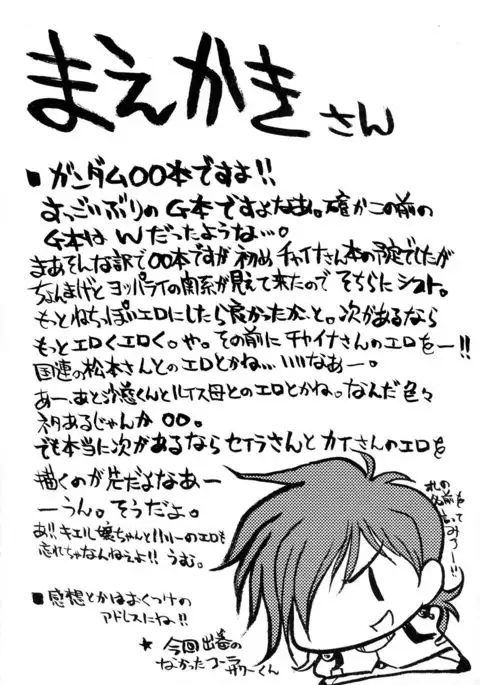 まえがきさん
■ガンダム00本ですよ!!
すっごいぶりのG本ですよなあ。確かこの前の
G本はWだったような…。
まあそんな訳で00本ですが初めチャイナさん本の予定でしたが
ちょんまげとヨッパライの関系が見えて来たのでそちらにシフト。
もっとねちっぽいエロにしたら良かったかーと。次があるなら
もっとエロくエロく。や。その前にチャイナさんのエロをー!!
国連の松本さんとのエロとかね…いいなあー。
あー、あと沙慈くんとルイス母とのエロとかね。なんだ色々
ネタあるじゃんか00。
でも本当に次があるならセイラさんとカイさんのエロを
描くのが先だよなあー
ーうん。そうだよ。
あ!!キエル嬢ちゃんとハリーのエロも
忘れちゃなんねえよ!!うむ。
■感想とかはおくつけの
アドレスにね!!
★今回出番の
なかったコーラ
サワーくん
の名前を
言って
みろー!!